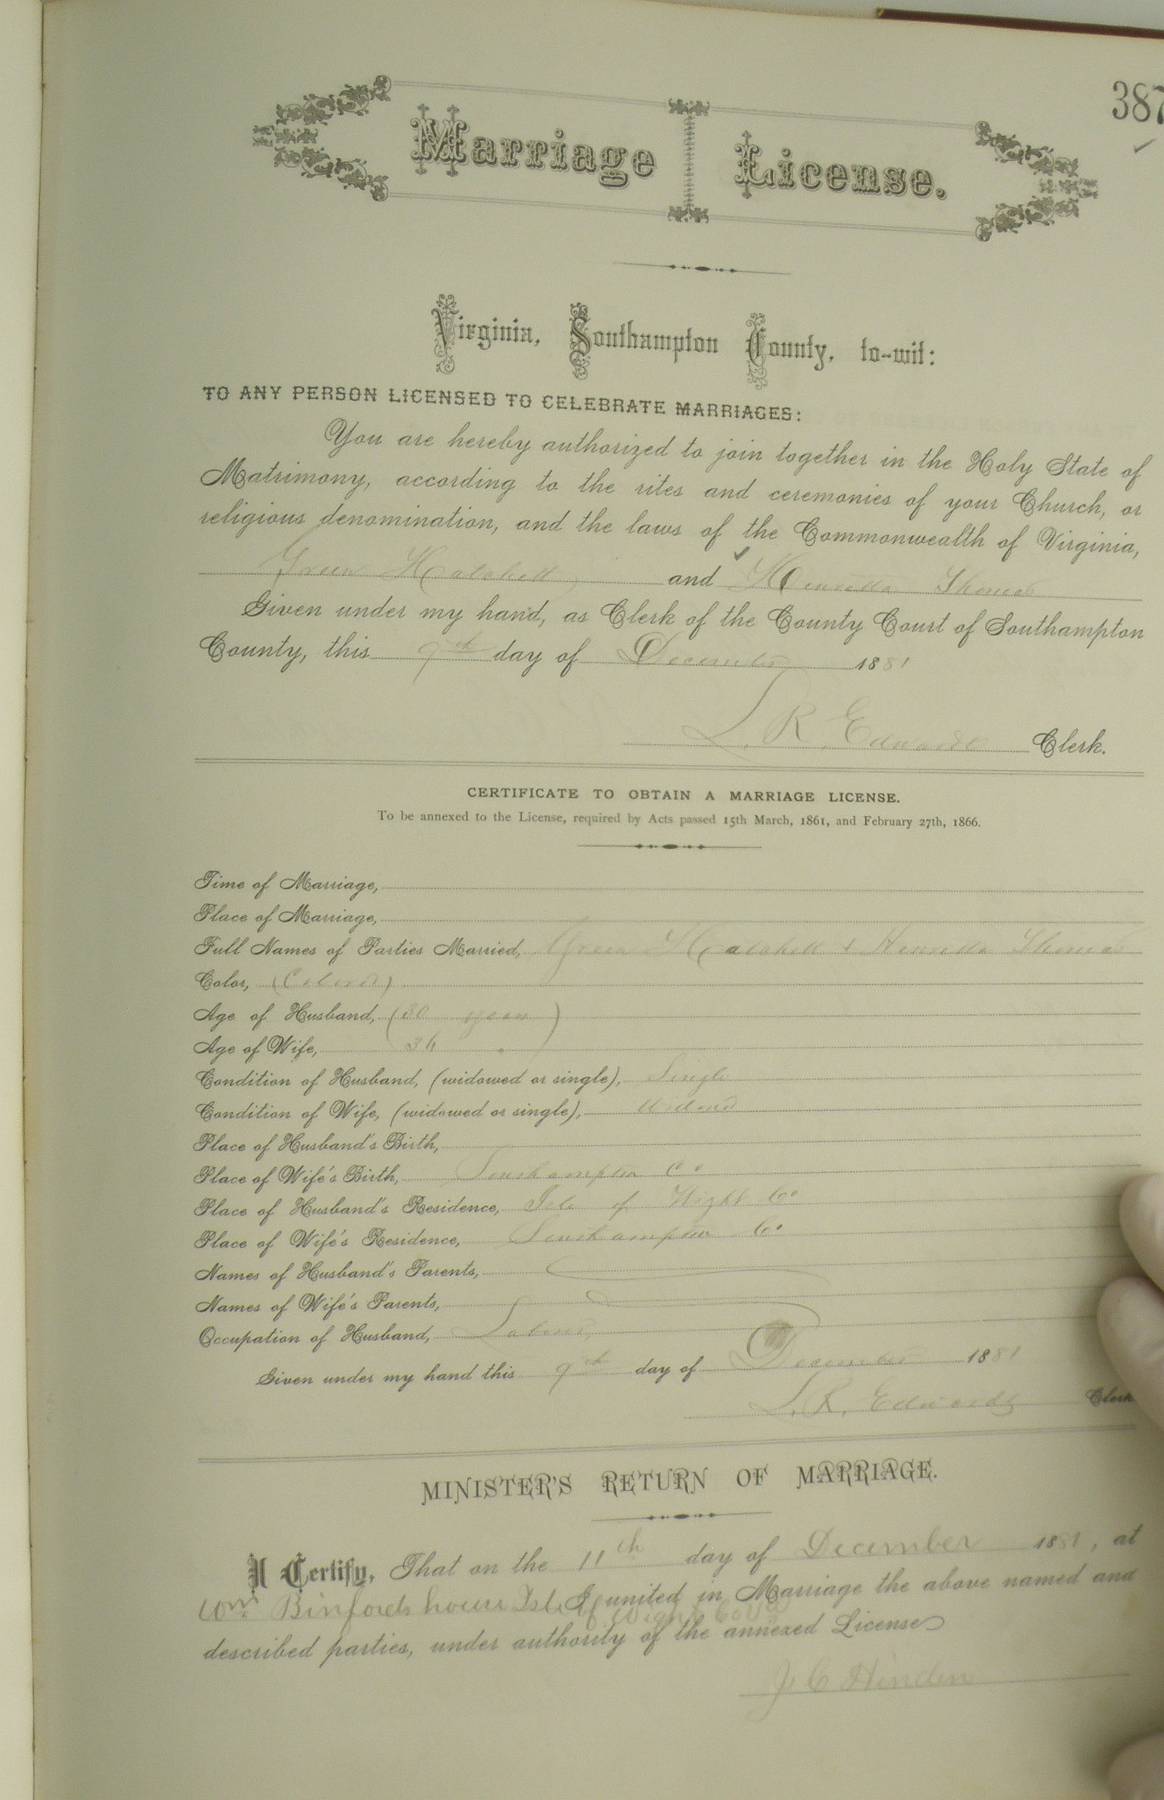 387
Marriage License.
Virginia, Southampton County, to-wit:
TO ANY PERSON LICENSED TO CELEBRATE MARRIAGES:
You are hereby authorized to join together in the Holy State of
Matrimony, according to the rites and ceremonies of your Church, or
religious denomination, and the laws of the Commonwealth of Virginia,
Green and Henrietta Thomas
Given under my hand, as Clerk of the County Court of Southampton
County, this 9th day of December 1881
L. R. Edwards Clerk.
CERTIFICATE TO OBTAIN A MARRIAGE LICENSE.
To be annexed to the License, required by Acts passed 15th March, 1861, and February 27th, 1866.
Time of Marriage,
Place of Marriage,
Full Names of Parties Married, Green & Henrietta Thomas
Color, (Colored)
Age of Husband, (30 years)
Age of Wife, 36 "
Condition of Husband, (widowed or single), Single
Condition of Wife, (widowed or single), Widowed
Place of Husband's Birth,
Place of Wife's Birth, Southampton Co
Place of Husband's Residence, Isle of Wight Co
Place of Wife's Residence, Southampton Co.
Names of Husband's Parents,
Names of Wife's Parents,
Occupation of Husband, Laborer
Given under my hand this 9th day of December 1881
L. R. Edwards Clerk
MINISTER'S RETURN OF MARRIAGE.
I Certify, That on the 11th day of December 1881, at
Wm. Binfords house Isle of Wight County I united in Marriage the above named and
described parties, under authority of the annexed License
J C